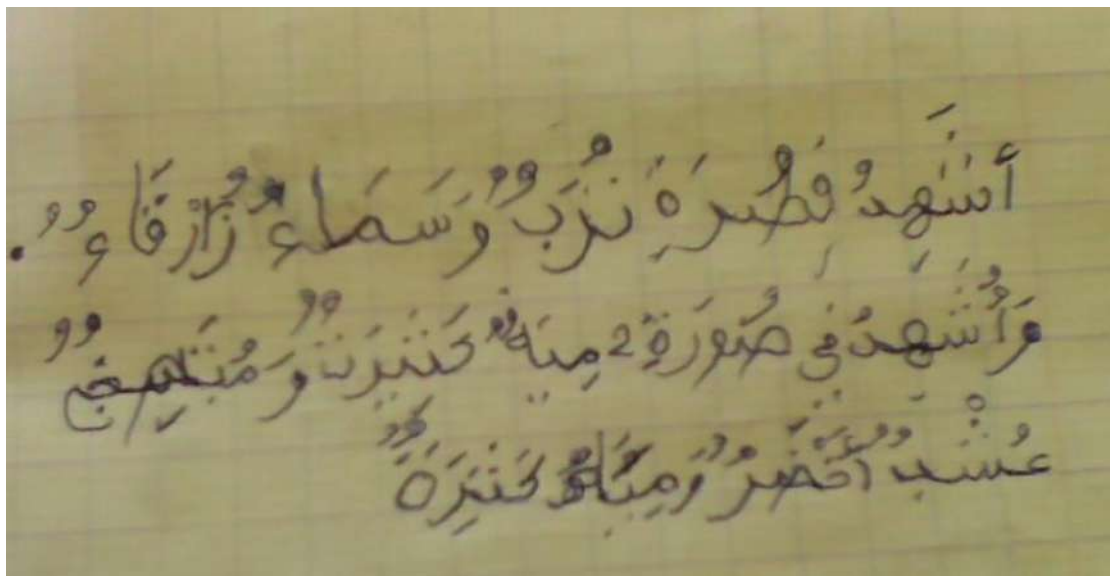 أَشَهِدُ فِصُرَةِ تُرَبٌ وَسَمَاءٌ زُازْقَاءٌ .
وَأُشَهِدُ فِي صُورَةِ 2 مِيَهٌ كَثِيرَتٌ وَ
عُشْبٌ أَخْضَرُ وَمِيَاهٌ كَثِرَةٌ